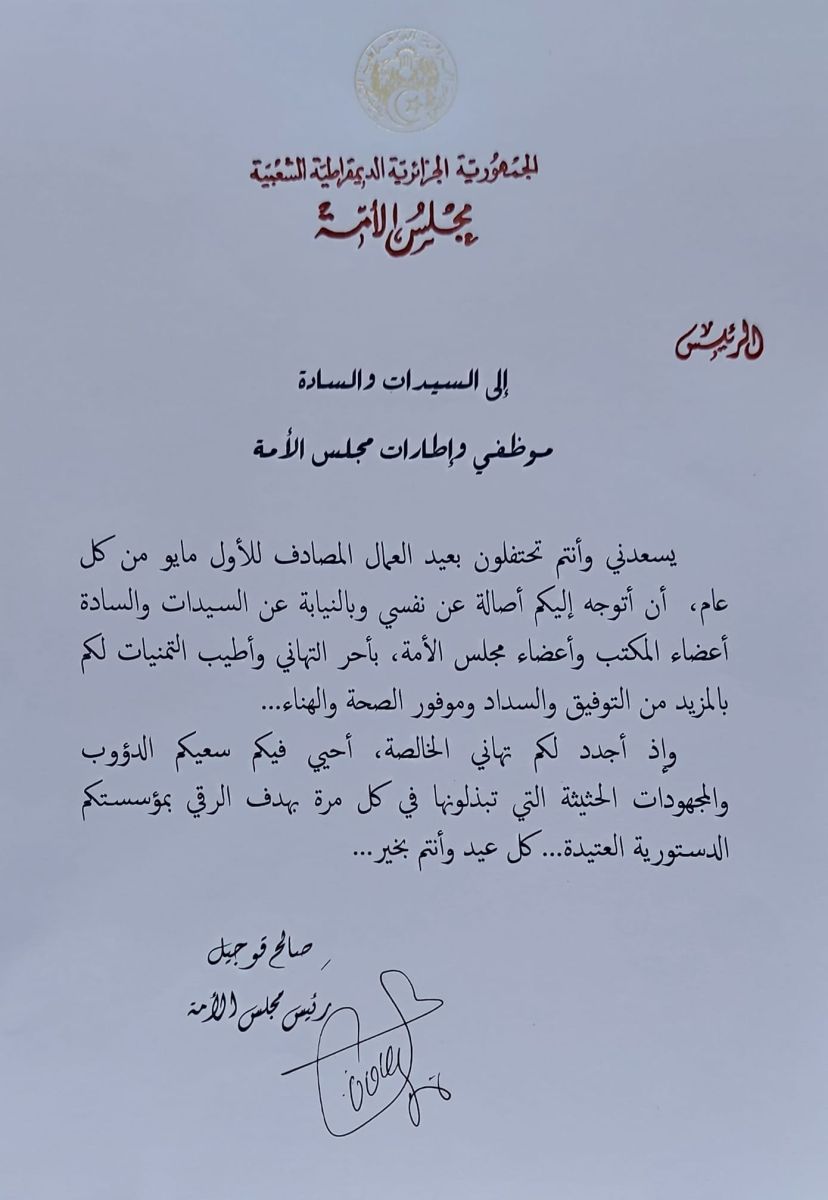 الجمهورية الجزائرية الديمقراطية الشعبية
مجلس الأمة
الرئيس
إلى السيدات والسادة
موظفي وإطارات مجلس الأمة
يسعدني وأنتم تحتفلون بعيد العمال المصادف للأول مايو من كل
عام، أن أتوجه إليكم أصالة عن نفسي وبالنيابة عن السيدات والسادة
أعضاء المكتب وأعضاء مجلس الأمة، بأحر التهاني وأطيب التمنيات لكم
بالمزيد من التوفيق والسداد وموفور الصحة والهناء...
وإذ أجدد لكم تهاني الخالصة، أحيي فيكم سعيكم الدؤوب
والمجهودات الحثيثة التي تبذلونها في كل مرة بهدف الرقي بمؤسستكم
الدستورية العتيدة... كل عيد وأنتم بخير...
صالح قوجيل
رئيس مجلس الأمة